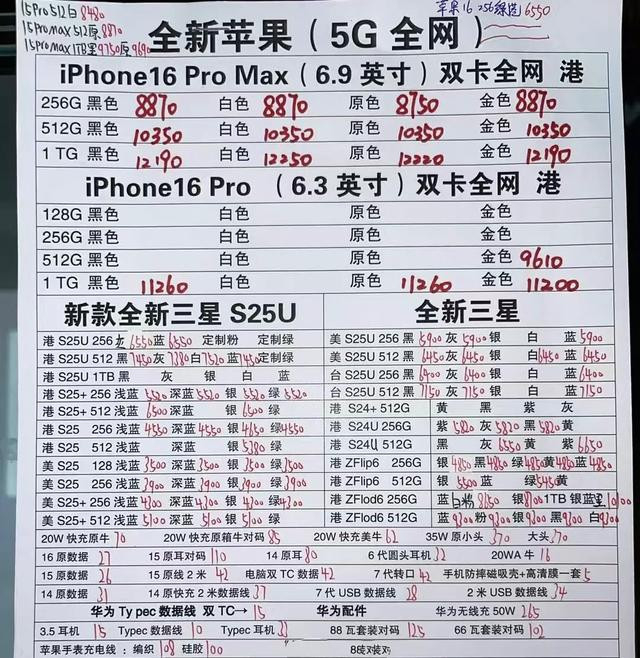 15Pro 512白 8480
15Promax 512原 8870
15Promax 1TB黑9750原9690
苹果16 256绿选6550
全新苹果（5G 全网）
iPhone16 Pro Max（6.9 英寸）双卡全网 港
256G 黑色 8870 白色 8870 原色 8750 金色 8870
512G 黑色 10350 白色 10350 原色 10350 金色 10350
1 TG 黑色 12190 白色 12250 原色 12220 金色 12190
iPhone16 Pro （6.3 英寸）双卡全网 港
128G 黑色 白色 原色 金色
256G 黑色 白色 原色 金色
512G 黑色 白色 原色 金色 9610
1 TG 黑色 11260 白色 原色 11260 金色 11200
新款全新三星 S25U
港 S25U 256 6550蓝 6550 定制粉 定制绿
港 S25U 512 黑7450灰7380白7520蓝7450定制绿
港 S25U 1TB 黑 灰 银 白 蓝
港 S25+ 256 浅蓝 5520深蓝5520 银 5520 绿 5520
港 S25+ 512 浅蓝 6500深蓝 银 6500 绿
港 S25 256 浅蓝 4550深蓝4550 银 4650 绿4550
港 S25 512 浅蓝 深蓝 银 5380 绿
美 S25 128 浅蓝 3500深蓝 3500 银 3500 绿 3500
美 S25 256 浅蓝 3900深蓝 3900 银 3900 绿 3900
美 S25+ 256 浅蓝 4300深蓝 4300 银 4300 绿4300
美 S25+ 512 浅蓝 5100深蓝 5100 银 5100 绿 5100
全新三星
美 S25U 256 黑 5900灰 5900银 白 蓝 5900
美 S25U 512 黑 6450灰 6450银 白6450 蓝 6450
台 S25U 256 黑 6400灰 6400银 白 蓝 6400
台 S25U 512 黑 7150灰 7150银 白 蓝 7150
港 S24+ 512G 黄 黑 紫 灰
港 S24U 256G 紫 5820 灰 5820 黑 5820 黄
港 S24U 512G 黑 灰 6550 黄 紫 6650
港 ZFlip6 256G 银 4850 黑4850 绿4850黄4850 蓝4850
港 ZFlip6 512G 银 5500 蓝 绿5450黄
港 ZFlod6 256G 蓝 白粉 8650 银8700 1TB 银蓝黑10100
港 ZFlod6 512G 蓝9300 粉9300 银9300 黑9300 白9300
20W 快充原牛 70 20W 快充原箱牛对码 85 20W 快充美牛 62 35W 原小头 370 大头370
16 原数据 27 15 原耳对码 110 14 原耳 80 6 代圆头耳机 32 20WA 牛 16
15 原数据 26 15 原线 2 米 42 电脑双 TC 数据 42 7 代转口 42 手机防摔磁吸壳+高清膜一套 5
14 原数据 31 14 原快充 2 米数据线 37 7 代 USB 数据线 28 2 米 USB 数据线 34
华为 Ty pec 数据线 双 TC→ 15 华为配件 华为无线充 50W 265
3.5 耳机 15 Typec 数据线 10 Typec 耳机 33 88 瓦套装对码 125 66 瓦套装对码 102
苹果手表充电线：编织 108 硅胶100